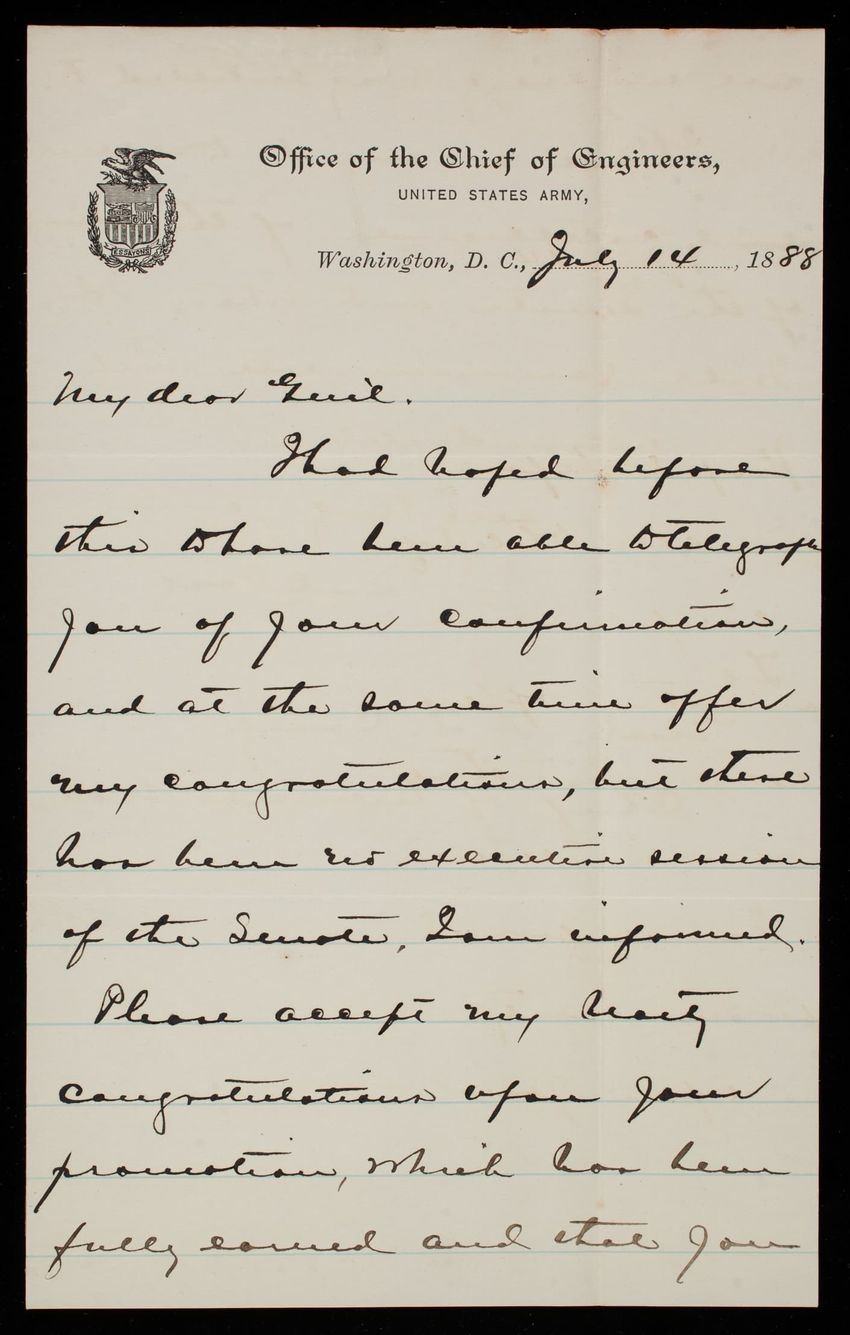 Office of the Chief of Engineers,
UNITED STATES ARMY,
ESSAYONS
Washington, D. C., July 14, 1888
My dear Genl.
I had hoped before
this to have been able to telegraph
you of your confirmation,
and at the same time offer
my congratulations, but there
has been no executive session
of the Senate, I am informed.
Please accept my hearty
congratulations upon your
promotion, which has been
fully earned and that you